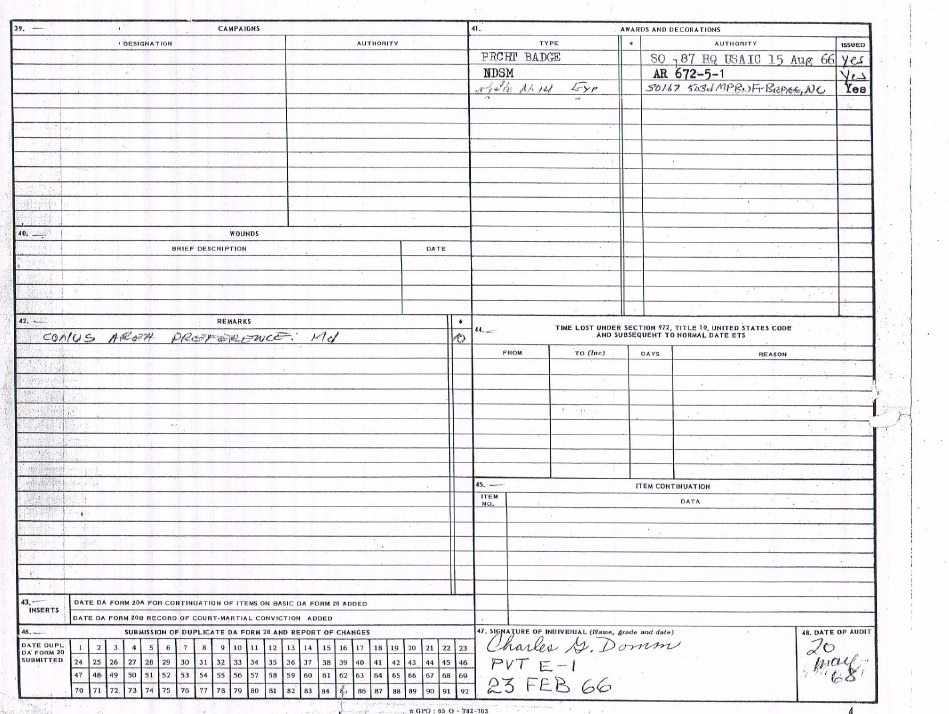 39. CAMPAIGNS
DESIGNATION AUTHORITY
41. AWARDS AND DECORATIONS
TYPE * AUTHORITY ISSUED
PRCHT BADGE SO 87 HQ USAIC 15 Aug 66 Yes
NDSM AR 672-5-1 Yes
Exp SO167 503d MPBN Ft BRAGG, NC Yes
40. WOUNDS
BRIEF DESCRIPTION DATE
42. REMARKS *
CONUS AREA PREFERENCE: Md
44. TIME LOST UNDER SECTION 972, TITLE 10, UNITED STATES CODE
AND SUBSEQUENT TO NORMAL DATE ETS
FROM TO (Inc) DAYS REASON
45. ITEM CONTINUATION
ITEM NO. DATA
43. INSERTS
DATE DA FORM 20A FOR CONTINUATION OF ITEMS ON BASIC DA FORM 20 ADDED
DATE DA FORM 20B RECORD OF COURT-MARTIAL CONVICTION ADDED
46. SUBMISSION OF DUPLICATE DA FORM 20 AND REPORT OF CHANGES
DATE DUPL. DA FORM 20 SUBMITTED
1 2 3 4 5 6 7 8 9 10 11 12 13 14 15 16 17 18 19 20 21 22 23
24 25 26 27 28 29 30 31 32 33 34 35 36 37 38 39 40 41 42 43 44 45 46
47 48 49 50 51 52 53 54 55 56 57 58 59 60 61 62 63 64 65 66 67 68 69
70 71 72 73 74 75 76 77 78 79 80 81 82 83 84 86 87 88 89 90 91 92
47. SIGNATURE OF INDIVIDUAL (Name, grade and date)
Charles G. Domm
PVT E-1
23 FEB 66
48. DATE OF AUDIT
20
May
68
☆ GPO : 65 O - 782-703
4